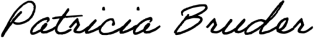 Patricia Bruder